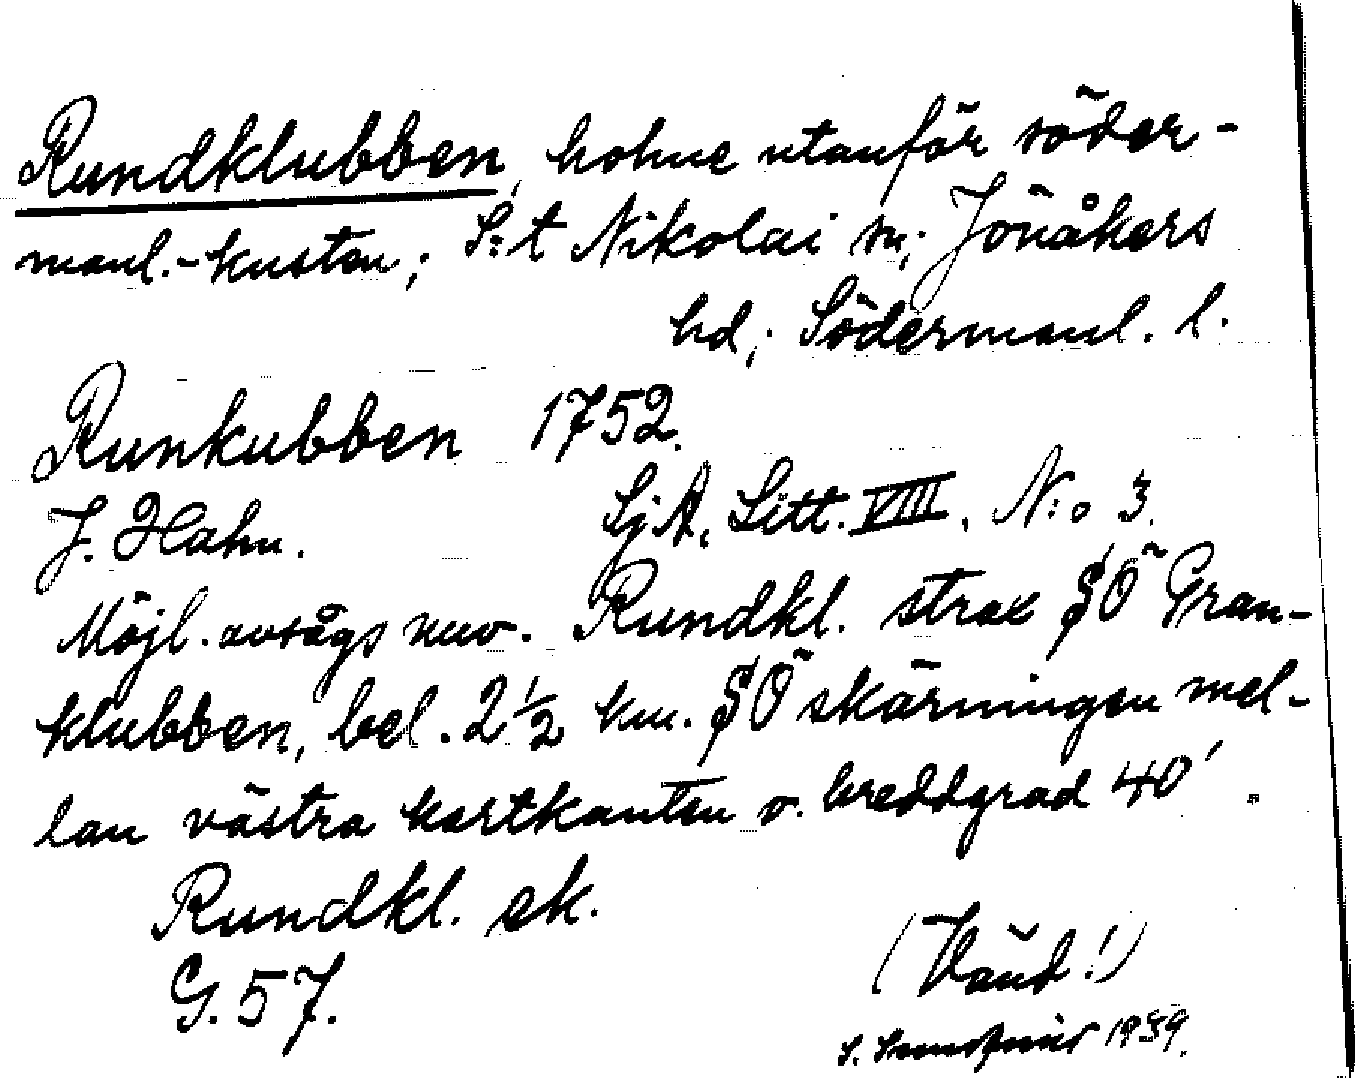 Rundklubben, holme utanför söder-
manl.-kusten; S:t Nikolai sn; Jönåkers
hd; Södermanl. l.
Runkubben 1752.
J. Hahn. SjA, Litt. VIII. N:o 3.
Möjl. avsågs nuv. Rundkl. strax SÖ Gran-
klubben, bel. 2 1/2 km. SÖ skärningen mel-
lan västra kartkanten o. breddgrad 40'.
Rundkl. ek.
G. 57.
(Vänd!)
S. 1939.